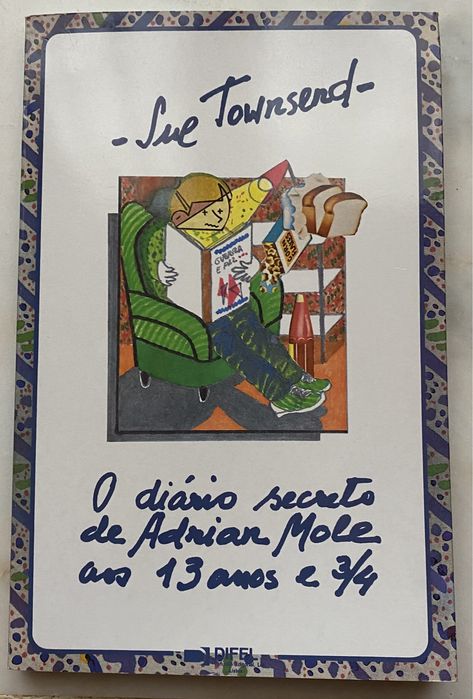 - Sue Townsend -
GUERRA
E PAZ...
O diário secreto
de Adrian Mole
aos 13 anos e 3/4
DIFEL